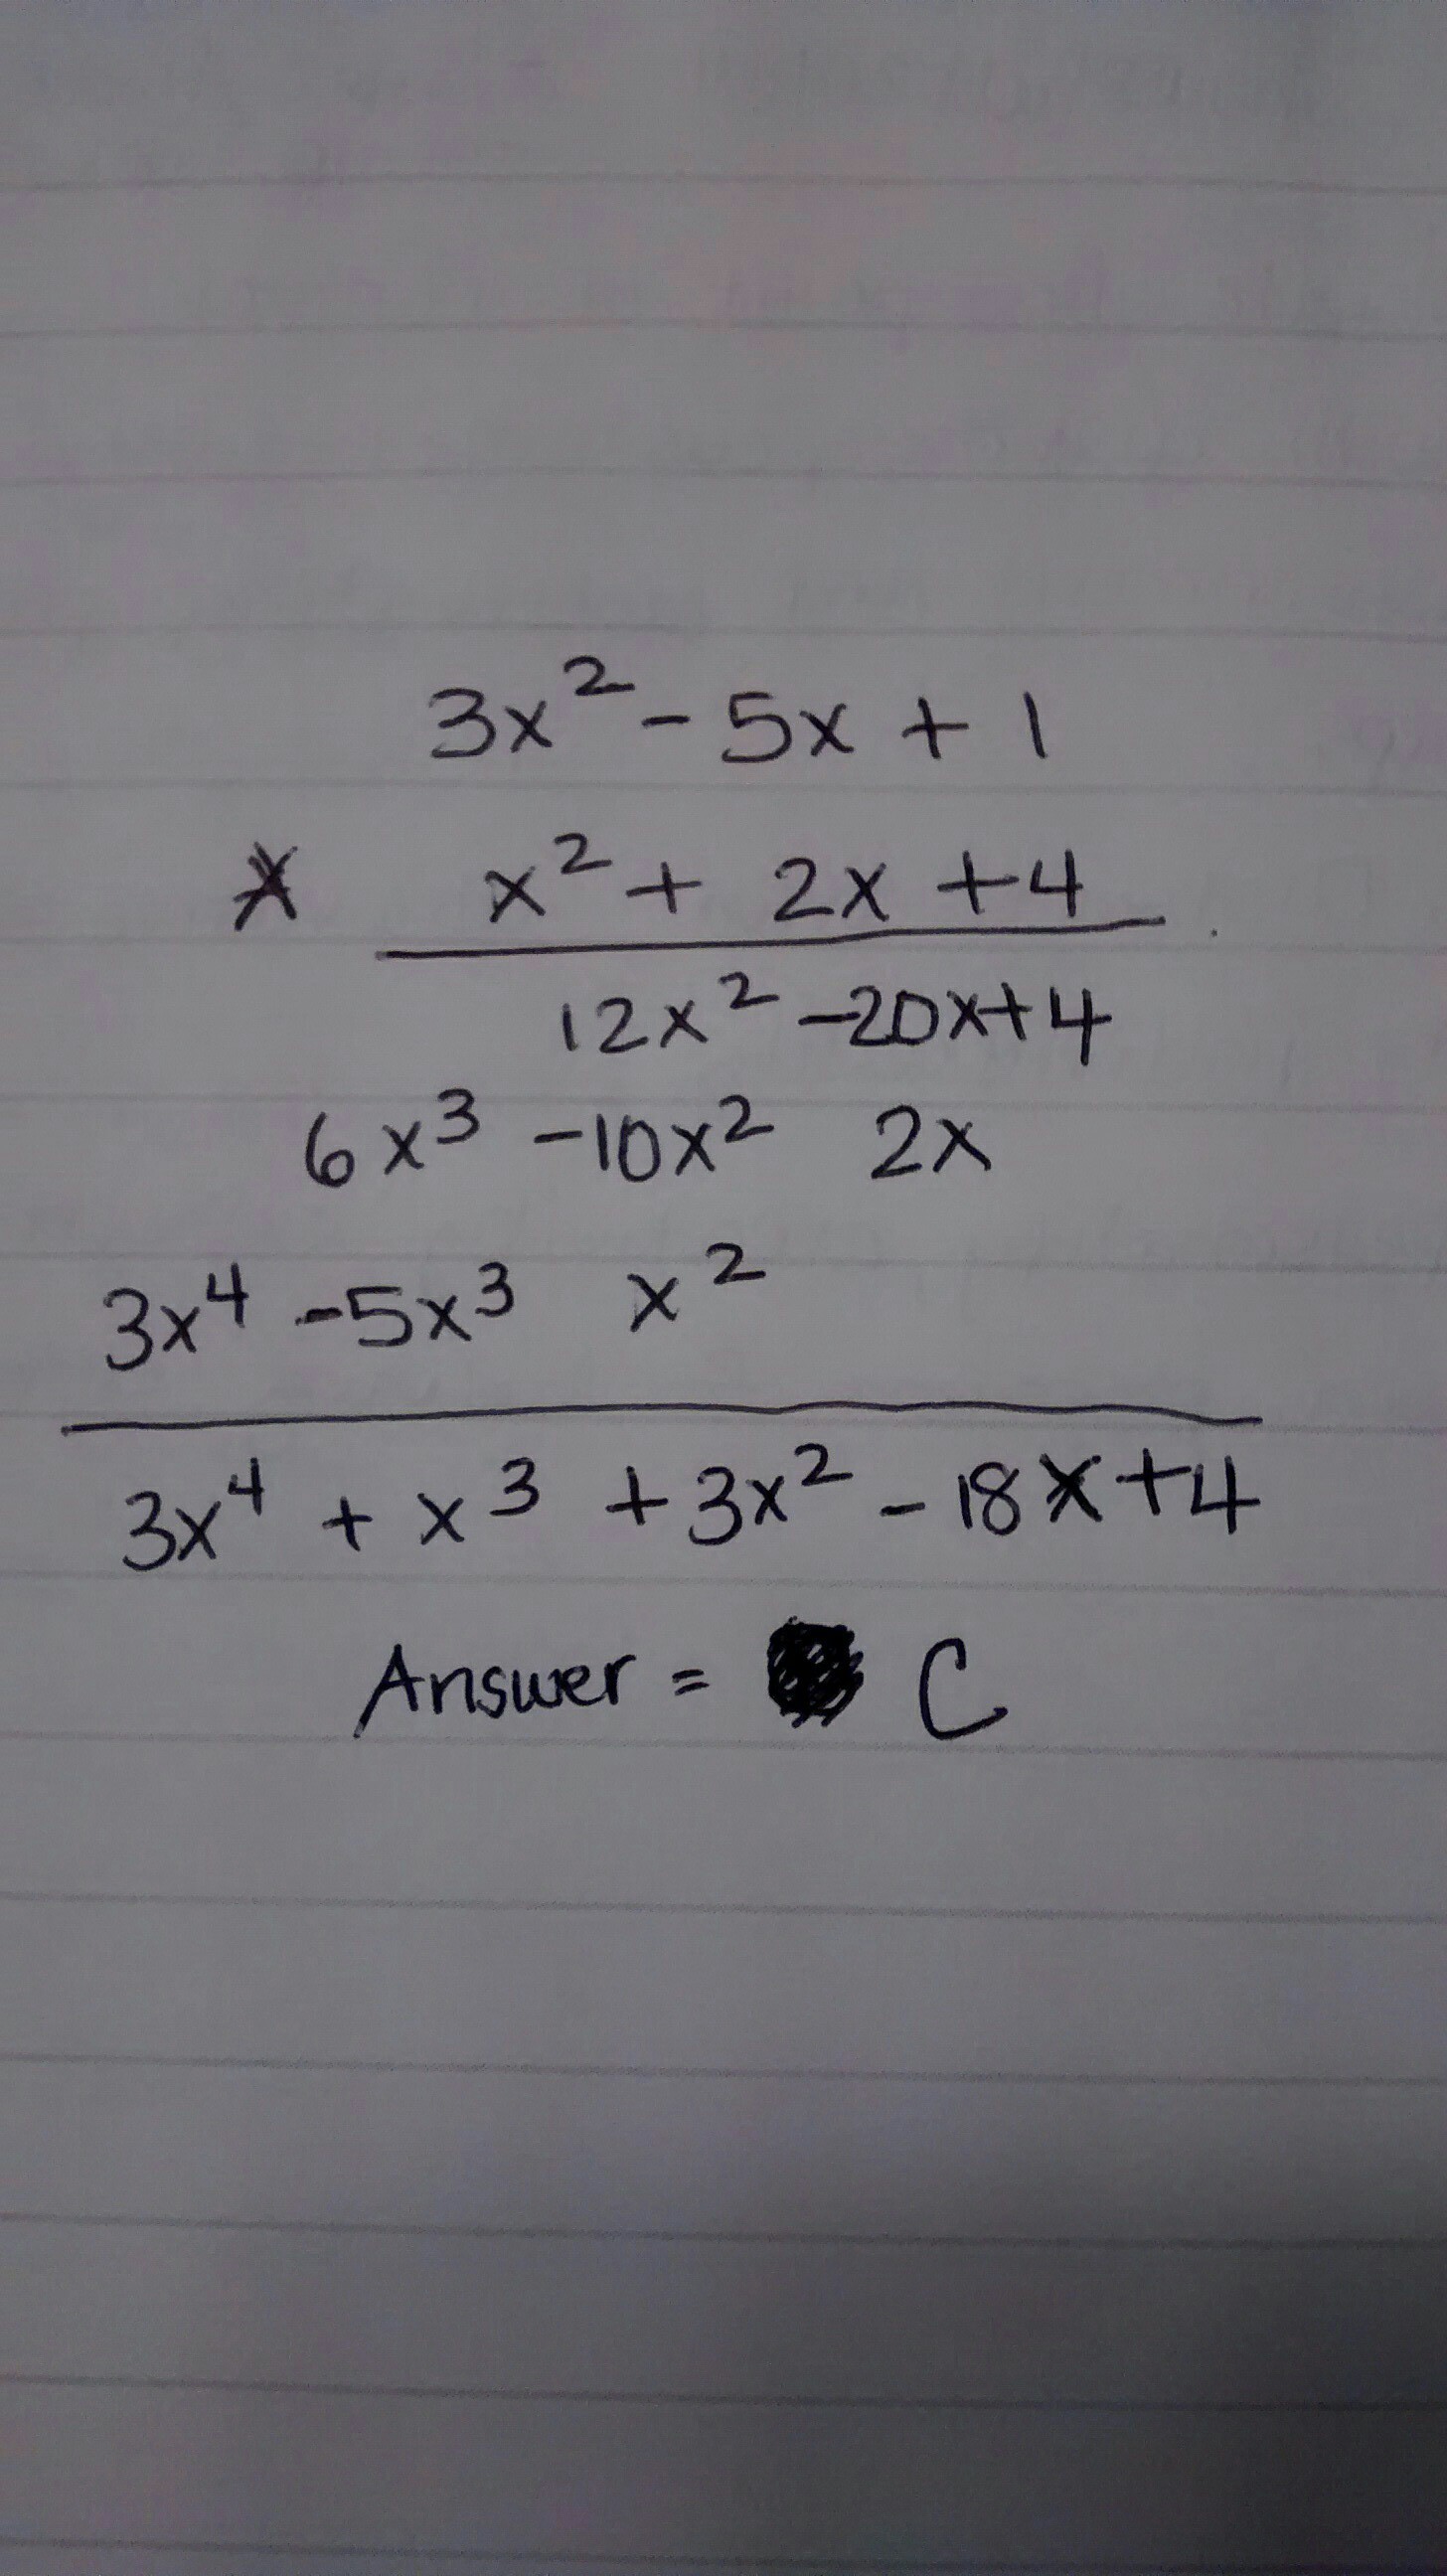 3x² - 5x + 1
x x² + 2x + 4
12x² - 20x + 4
6x³ - 10x² 2x
3x⁴ - 5x³ x²
3x⁴ + x³ + 3x² - 18x + 4
Answer = C